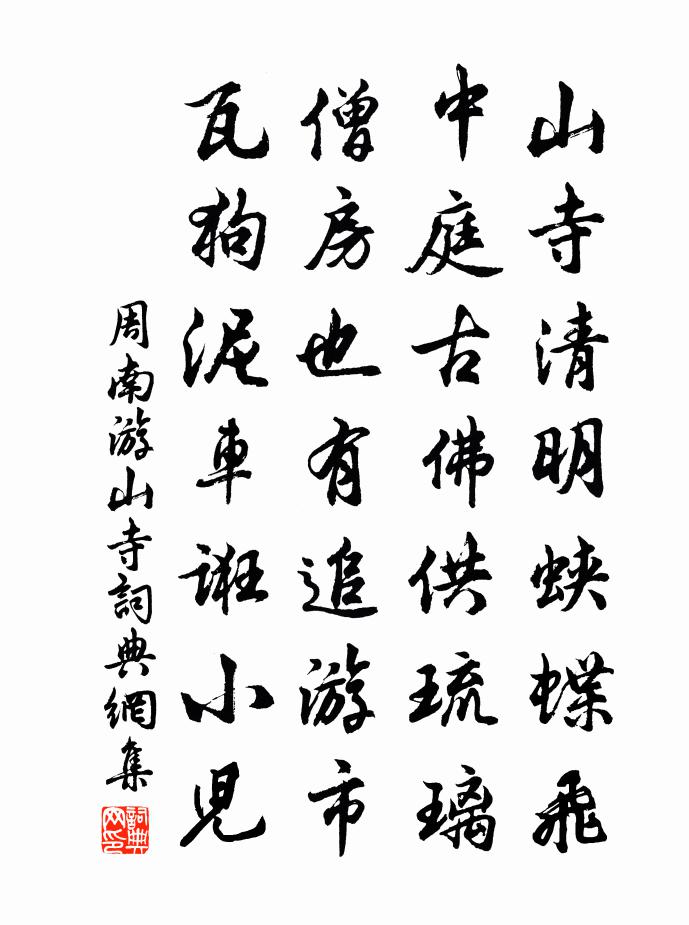 山寺清明蛺蝶飛
中庭古佛供琉璃
僧房也有追游市
瓦狗泥車誑小児
周南游山寺詞典網集
詞典网印